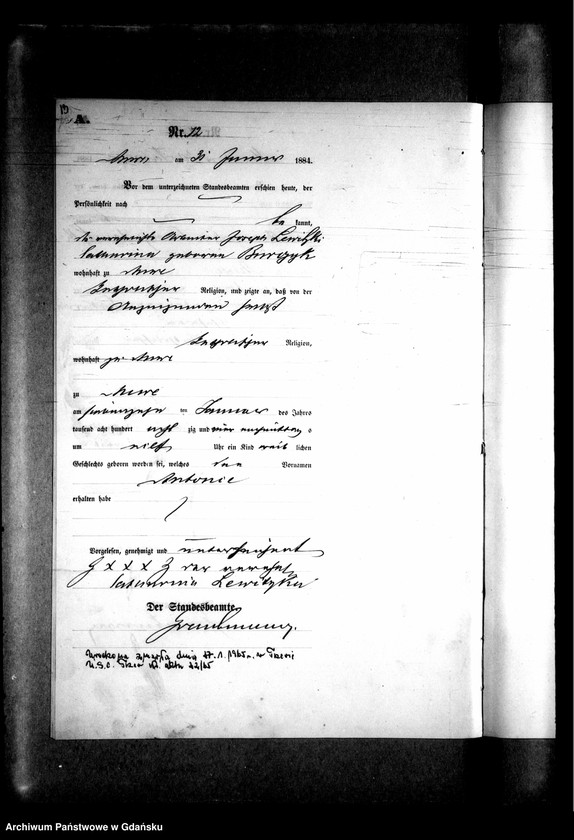 A.
Nr. 12
Mewe am 31 Januar 1884.
Vor dem unterzeichneten Standesbeamten erschien heute, der
Persönlichkeit nach
be kannt,
die verehelichte Arbeiter Joseph Lewitzki
Catharina geborene Burczyk
wohnhaft zu Mewe
katholischer Religion, und zeigte an, daß von der
Anzeigenden selbst
katholischer Religion,
wohnhaft zu Mewe
zu Mewe
am siebenzehn ten Januar des Jahres
tausend acht hundert acht zig und vier o
um elf Uhr ein Kind weib lichen
Geschlechts geboren worden sei, welches den Vornamen
Antonie
erhalten habe
Vorgelesen, genehmigt und unterzeichnet
x x x der verehel
Catharina Lewitzka
Der Standesbeamte.
zmarła dnia 17.1.1965 r. w
U.S.C. akt 22/65
Archiwum Państwowe w Gdańsku